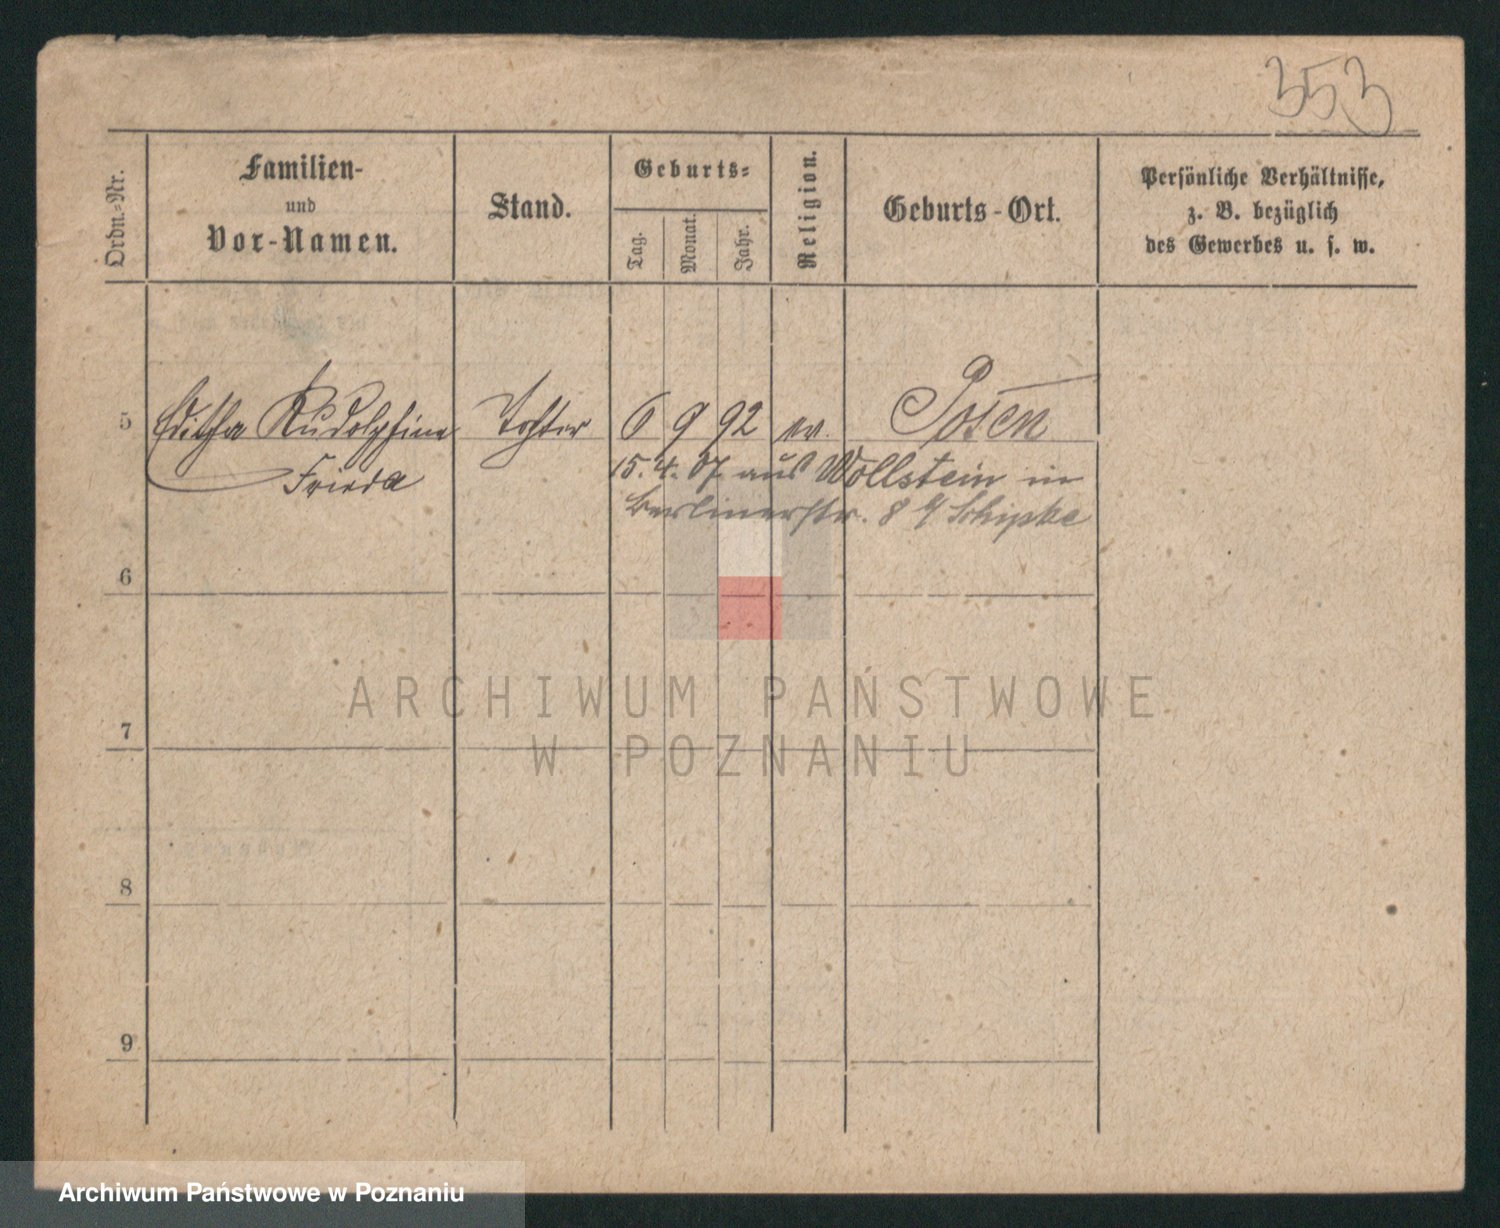 353
Ordn.-Nr.
Familien-
und
Vor-Namen.
Stand.
Geburts-
Tag.
Monat.
Jahr.
Religion.
Geburts-Ort.
Persönliche Verhältnisse,
z. B. bezüglich
des Gewerbes u. s. w.
5 Editha Rudolphine Tochter 6 9 92 ev. Posen
Frieda
15. 4. 07 aus Wollstein in
Berlinerstr. 8 Schipke
6
7
8
9
ARCHIWUM PAŃSTWOWE
W POZNANIU
Archiwum Państwowe w Poznaniu